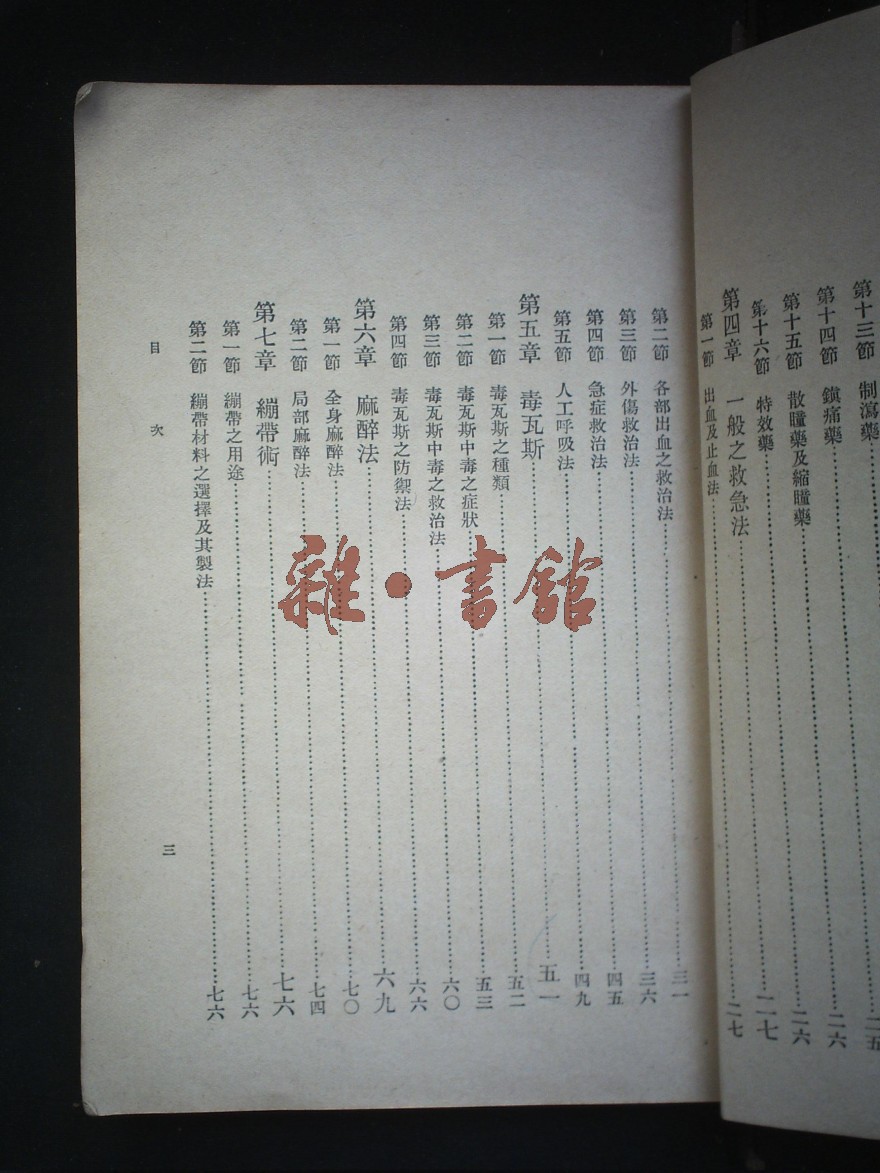 第十三節 制瀉藥……二五
第十四節 鎮痛藥……二六
第十五節 散瞳藥及縮瞳藥……二六
第十六節 特效藥……二七
第四章 一般之救急法
第一節 出血及止血法……二七
第二節 各部出血之救治法……三一
第三節 外傷救治法……三六
第四節 急症救治法……四五
第五節 人工呼吸法……四九
第五章 毒瓦斯……五一
第一節 毒瓦斯之種類……五二
第二節 毒瓦斯中毒之症狀……五三
第三節 毒瓦斯中毒之救治法……六〇
第四節 毒瓦斯之防禦法……六六
第六章 麻醉法……六九
第一節 全身麻醉法……七〇
第二節 局部麻醉法……七四
第七章 繃帶術……七六
第一節 繃帶之用途……七六
第二節 繃帶材料之選擇及其製法……七六
目次 三
雜·書館